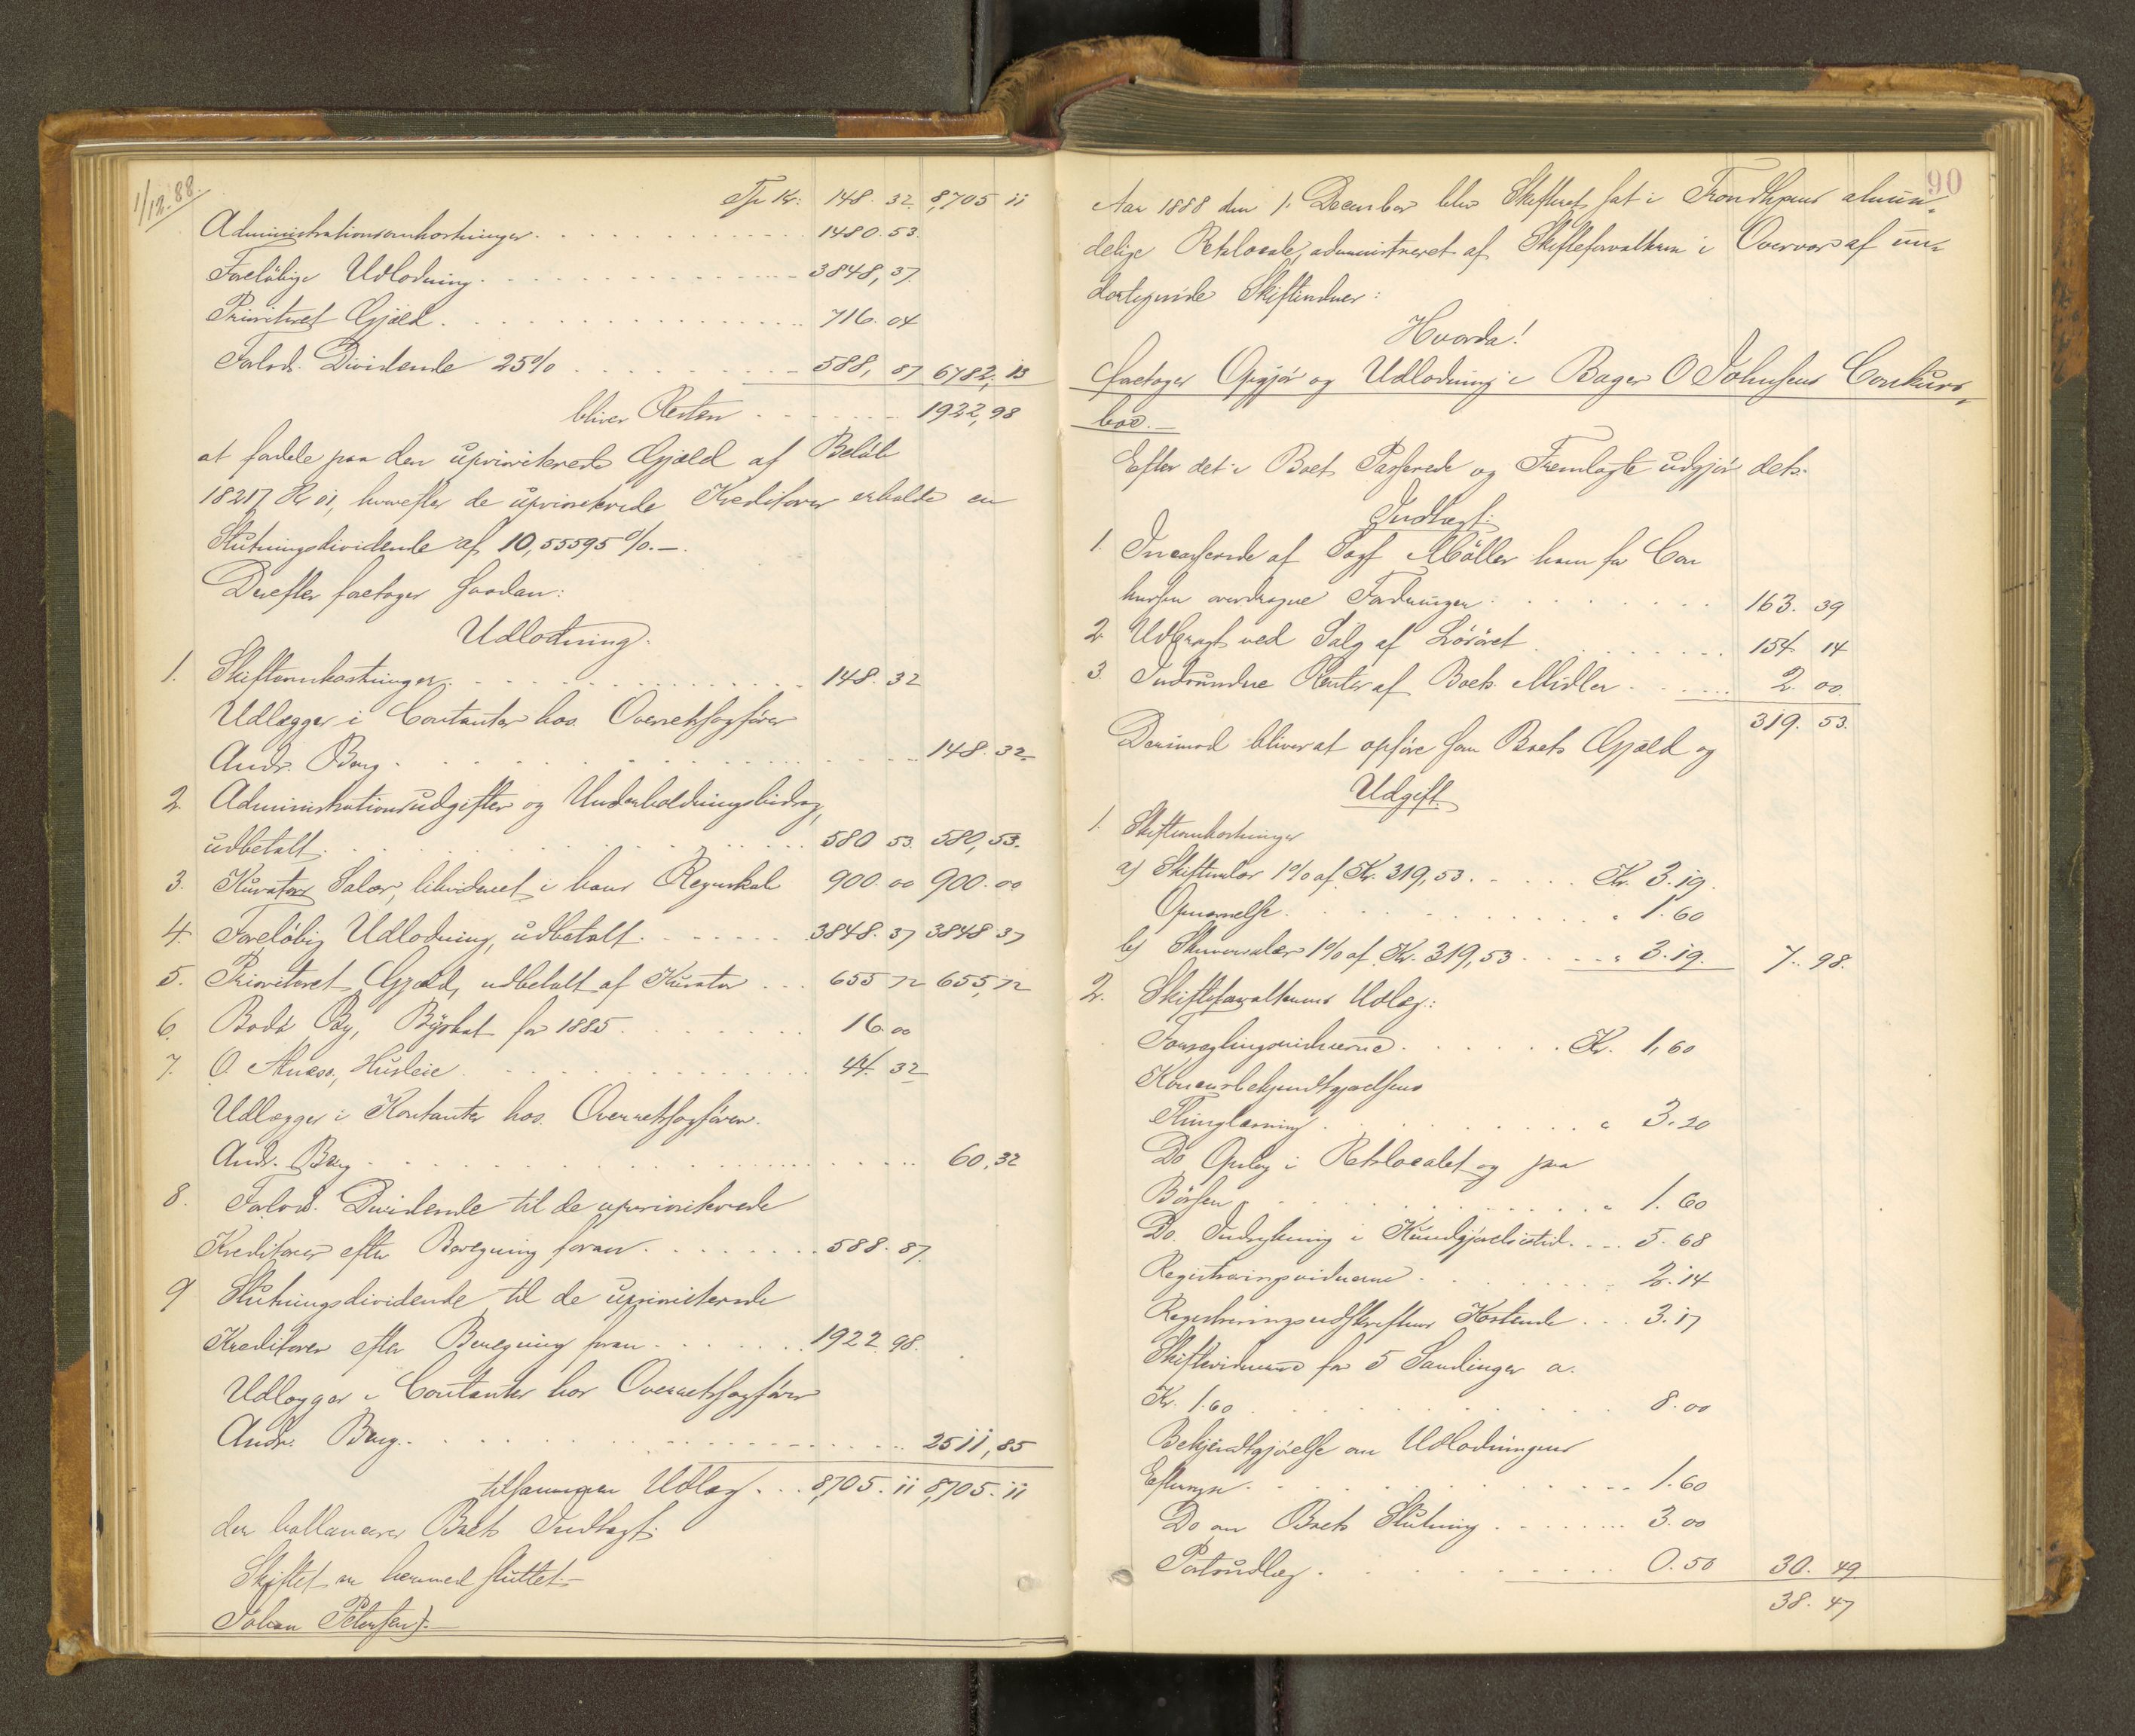 1/12. 88.
Tfr Kr: 148. 32 8,705 11
Administrationsomkostninger. 1480. 53.
Foreløbige Udlodning. 3848, 37.
Prioriteret Gjæld. 716. 04
Forlod. Dividende 25% 588, 87 6782, 13
bliver Resten 1922, 98
at fordele paa den uprioriterede Gjæld af Beløb
18217 Kr 01, hvorefter de uprioriterede Kreditorer erholde en
Slutningsdividende af 10,55595%.—
Derefter foretoges saadan:
Udlodning.
1. Skifteomkostninger. 148. 32
Udlægges i Contanter hos Overretssagfører
Andr. Berg. 148. 32
2. Administrationsudgifter og Underholdningsbidrag,
udbetalt. 580 53. 580, 53.
3. Kurators Salær, likvideret i hans Regnskab 900. 00 900. 00
4. Foreløbig Udlodning, udbetalt. 3848. 37 3848 37
5. Prioriteret Gjæld, udbetalt af Kurator 655 72 655, 72
6. Bodø By, Byskat for 1885. 16. 00
7. O. Husleie. 44. 32
Udlægges i Kontanter hos Overretssagfører.
Andr. Berg 60, 32
8. Forlod. Dividende til de uprioriterede
Kreditorer efter Beregning foran. 588. 87.
9 Slutningsdividende til de uprioriterede
Kreditorer efter Beregning foran 1922. 98.
Udlægges i Contanter hos Overretssagfører
Andr. Berg. 2511, 85
tilsammen Udlæg. 8,705. 11 8,705. 11
der ballancerer Boets Indtægt.
Skiftet er hermed sluttet.—
Johan Petersen).—
90
Aar 1888 den 1. December blev Skifteret sat i Trondhjems almin-
delige Retslocale, administreret af Skifteforvalteren i Overvær af un-
dertegnede Skiftevidner:
Hvorda!
foretoges Opgjør og Udlodning i Bager O Johnsens Conkurs-
boe.—
Efter det i Boet Passerede og Fremlagte udgjør dets:
Indtægt:
1. Incasserede af Sagf. Møller ham før Con
kursen overdragne Fordringer 163. 39
2 Udbragt ved Salg af Løsøret 154 14
3. Indvundne Renter af Boets Midler 2. 00.
319. 53.
Derimod bliver at opføre som Boets Gjæld og
Udgift.
1. Skifteomkostninger
a) Skiftesalær 1% af Kr. 319, 53. Kr. 3. 19.
Opnævnelse. " 1. 60
b) Skriversalær 1% af Kr. 319, 53 " 3. 19. 7. 98.
2. Skifteforvalterens Udlæg:
Forseglingsvidnerne. Kr. 1, 60
Konkursbekjendtgjørelsens
Thinglæsning " 3. 20
Do Opslag i Retslocalet og paa
Børsen " 1. 60
Do. Indrykning i Kundgjørelsestid. 5. 68
Registreringsvidnerne. 2. 14
Registreringsudskriftens Kostende 3. 17
Skiftevidnerne for 5 Samlinger a.
Kr. 1. 60 8. 00
Bekjendtgjørelse om Udlodningens
Eftersyn. 1. 60
Do om Boets Slutning 3. 00
Portoudlæg. 0. 50 30. 49.
38. 47